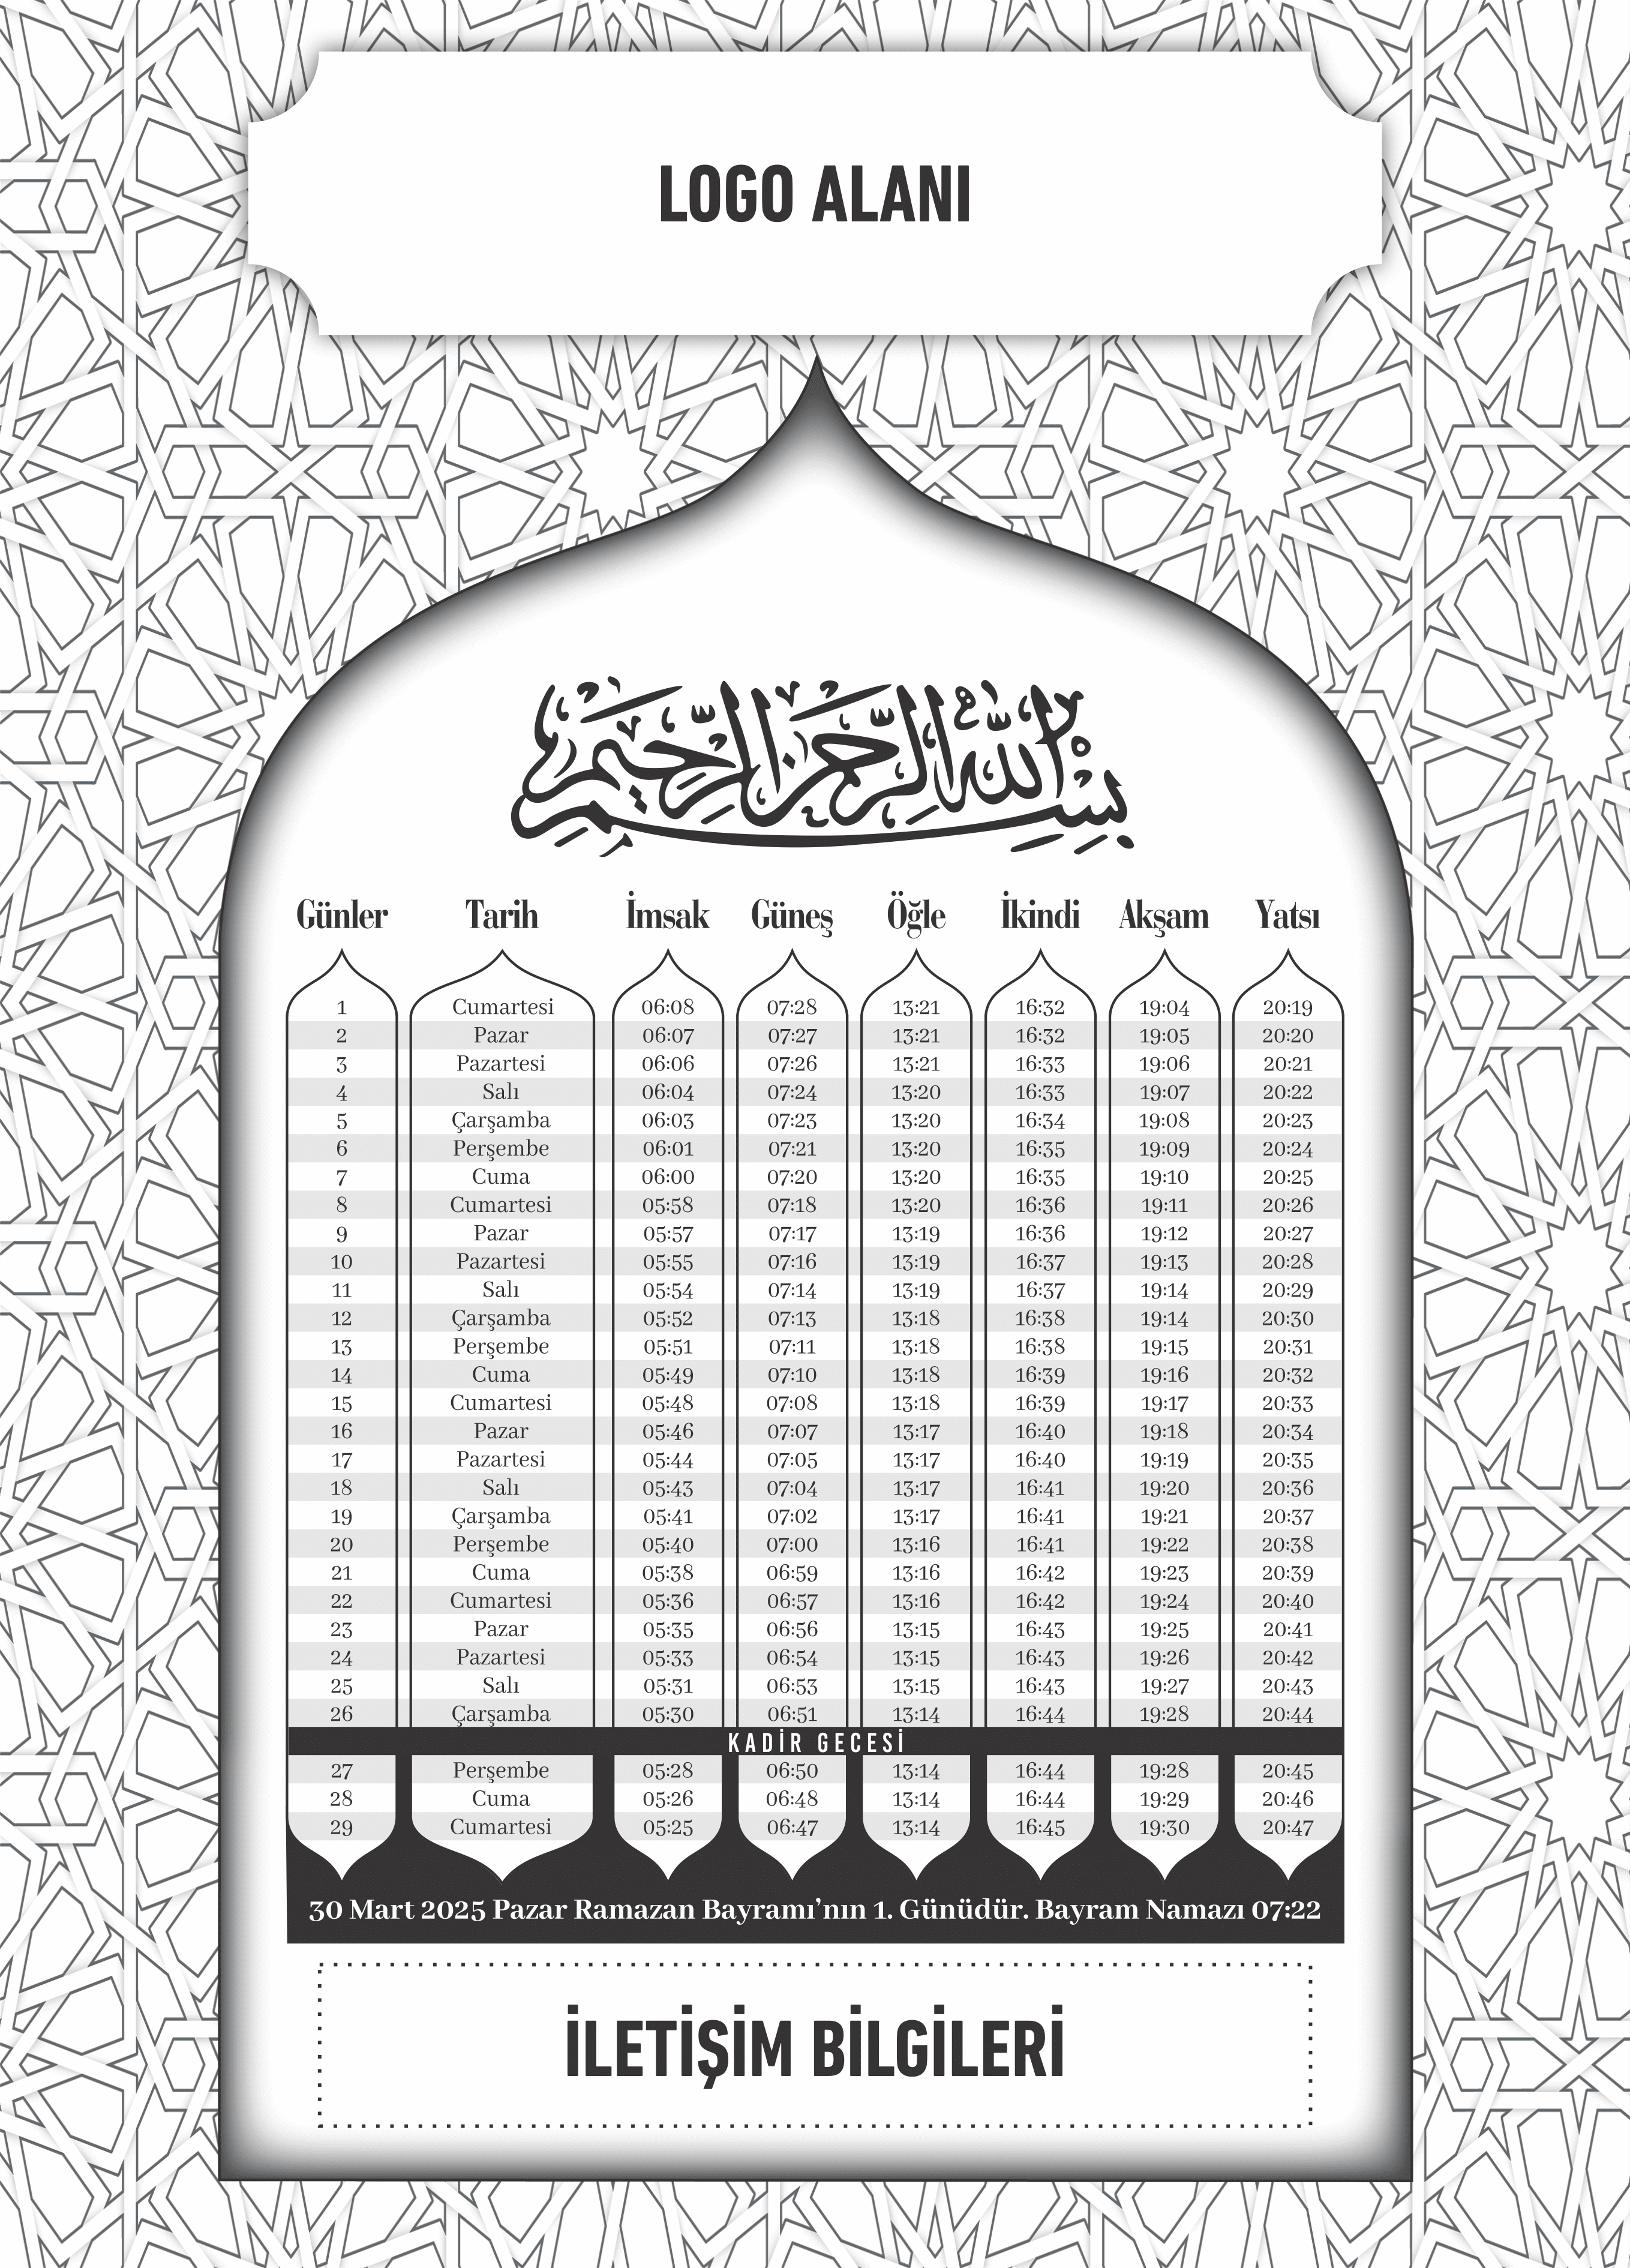 LOGO ALANI
بسم الله الرحمن الرحيم
Günler Tarih İmsak Güneş Öğle İkindi Akşam Yatsı
1 Cumartesi 06:08 07:28 13:21 16:32 19:04 20:19
2 Pazar 06:07 07:27 13:21 16:32 19:05 20:20
3 Pazartesi 06:06 07:26 13:21 16:33 19:06 20:21
4 Salı 06:04 07:24 13:20 16:33 19:07 20:22
5 Çarşamba 06:03 07:23 13:20 16:34 19:08 20:23
6 Perşembe 06:01 07:21 13:20 16:35 19:09 20:24
7 Cuma 06:00 07:20 13:20 16:35 19:10 20:25
8 Cumartesi 05:58 07:18 13:20 16:36 19:11 20:26
9 Pazar 05:57 07:17 13:19 16:36 19:12 20:27
10 Pazartesi 05:55 07:16 13:19 16:37 19:13 20:28
11 Salı 05:54 07:14 13:19 16:37 19:14 20:29
12 Çarşamba 05:52 07:13 13:18 16:38 19:14 20:30
13 Perşembe 05:51 07:11 13:18 16:38 19:15 20:31
14 Cuma 05:49 07:10 13:18 16:39 19:16 20:32
15 Cumartesi 05:48 07:08 13:18 16:39 19:17 20:33
16 Pazar 05:46 07:07 13:17 16:40 19:18 20:34
17 Pazartesi 05:44 07:05 13:17 16:40 19:19 20:35
18 Salı 05:43 07:04 13:17 16:41 19:20 20:36
19 Çarşamba 05:41 07:02 13:17 16:41 19:21 20:37
20 Perşembe 05:40 07:00 13:16 16:41 19:22 20:38
21 Cuma 05:38 06:59 13:16 16:42 19:23 20:39
22 Cumartesi 05:36 06:57 13:16 16:42 19:24 20:40
23 Pazar 05:35 06:56 13:15 16:43 19:25 20:41
24 Pazartesi 05:33 06:54 13:15 16:43 19:26 20:42
25 Salı 05:31 06:53 13:15 16:43 19:27 20:43
26 Çarşamba 05:30 06:51 13:14 16:44 19:28 20:44
KADİR GECESİ
27 Perşembe 05:28 06:50 13:14 16:44 19:28 20:45
28 Cuma 05:26 06:48 13:14 16:44 19:29 20:46
29 Cumartesi 05:25 06:47 13:14 16:45 19:30 20:47
30 Mart 2025 Pazar Ramazan Bayramı’nın 1. Günüdür. Bayram Namazı 07:22
İLETİŞİM BİLGİLERİ